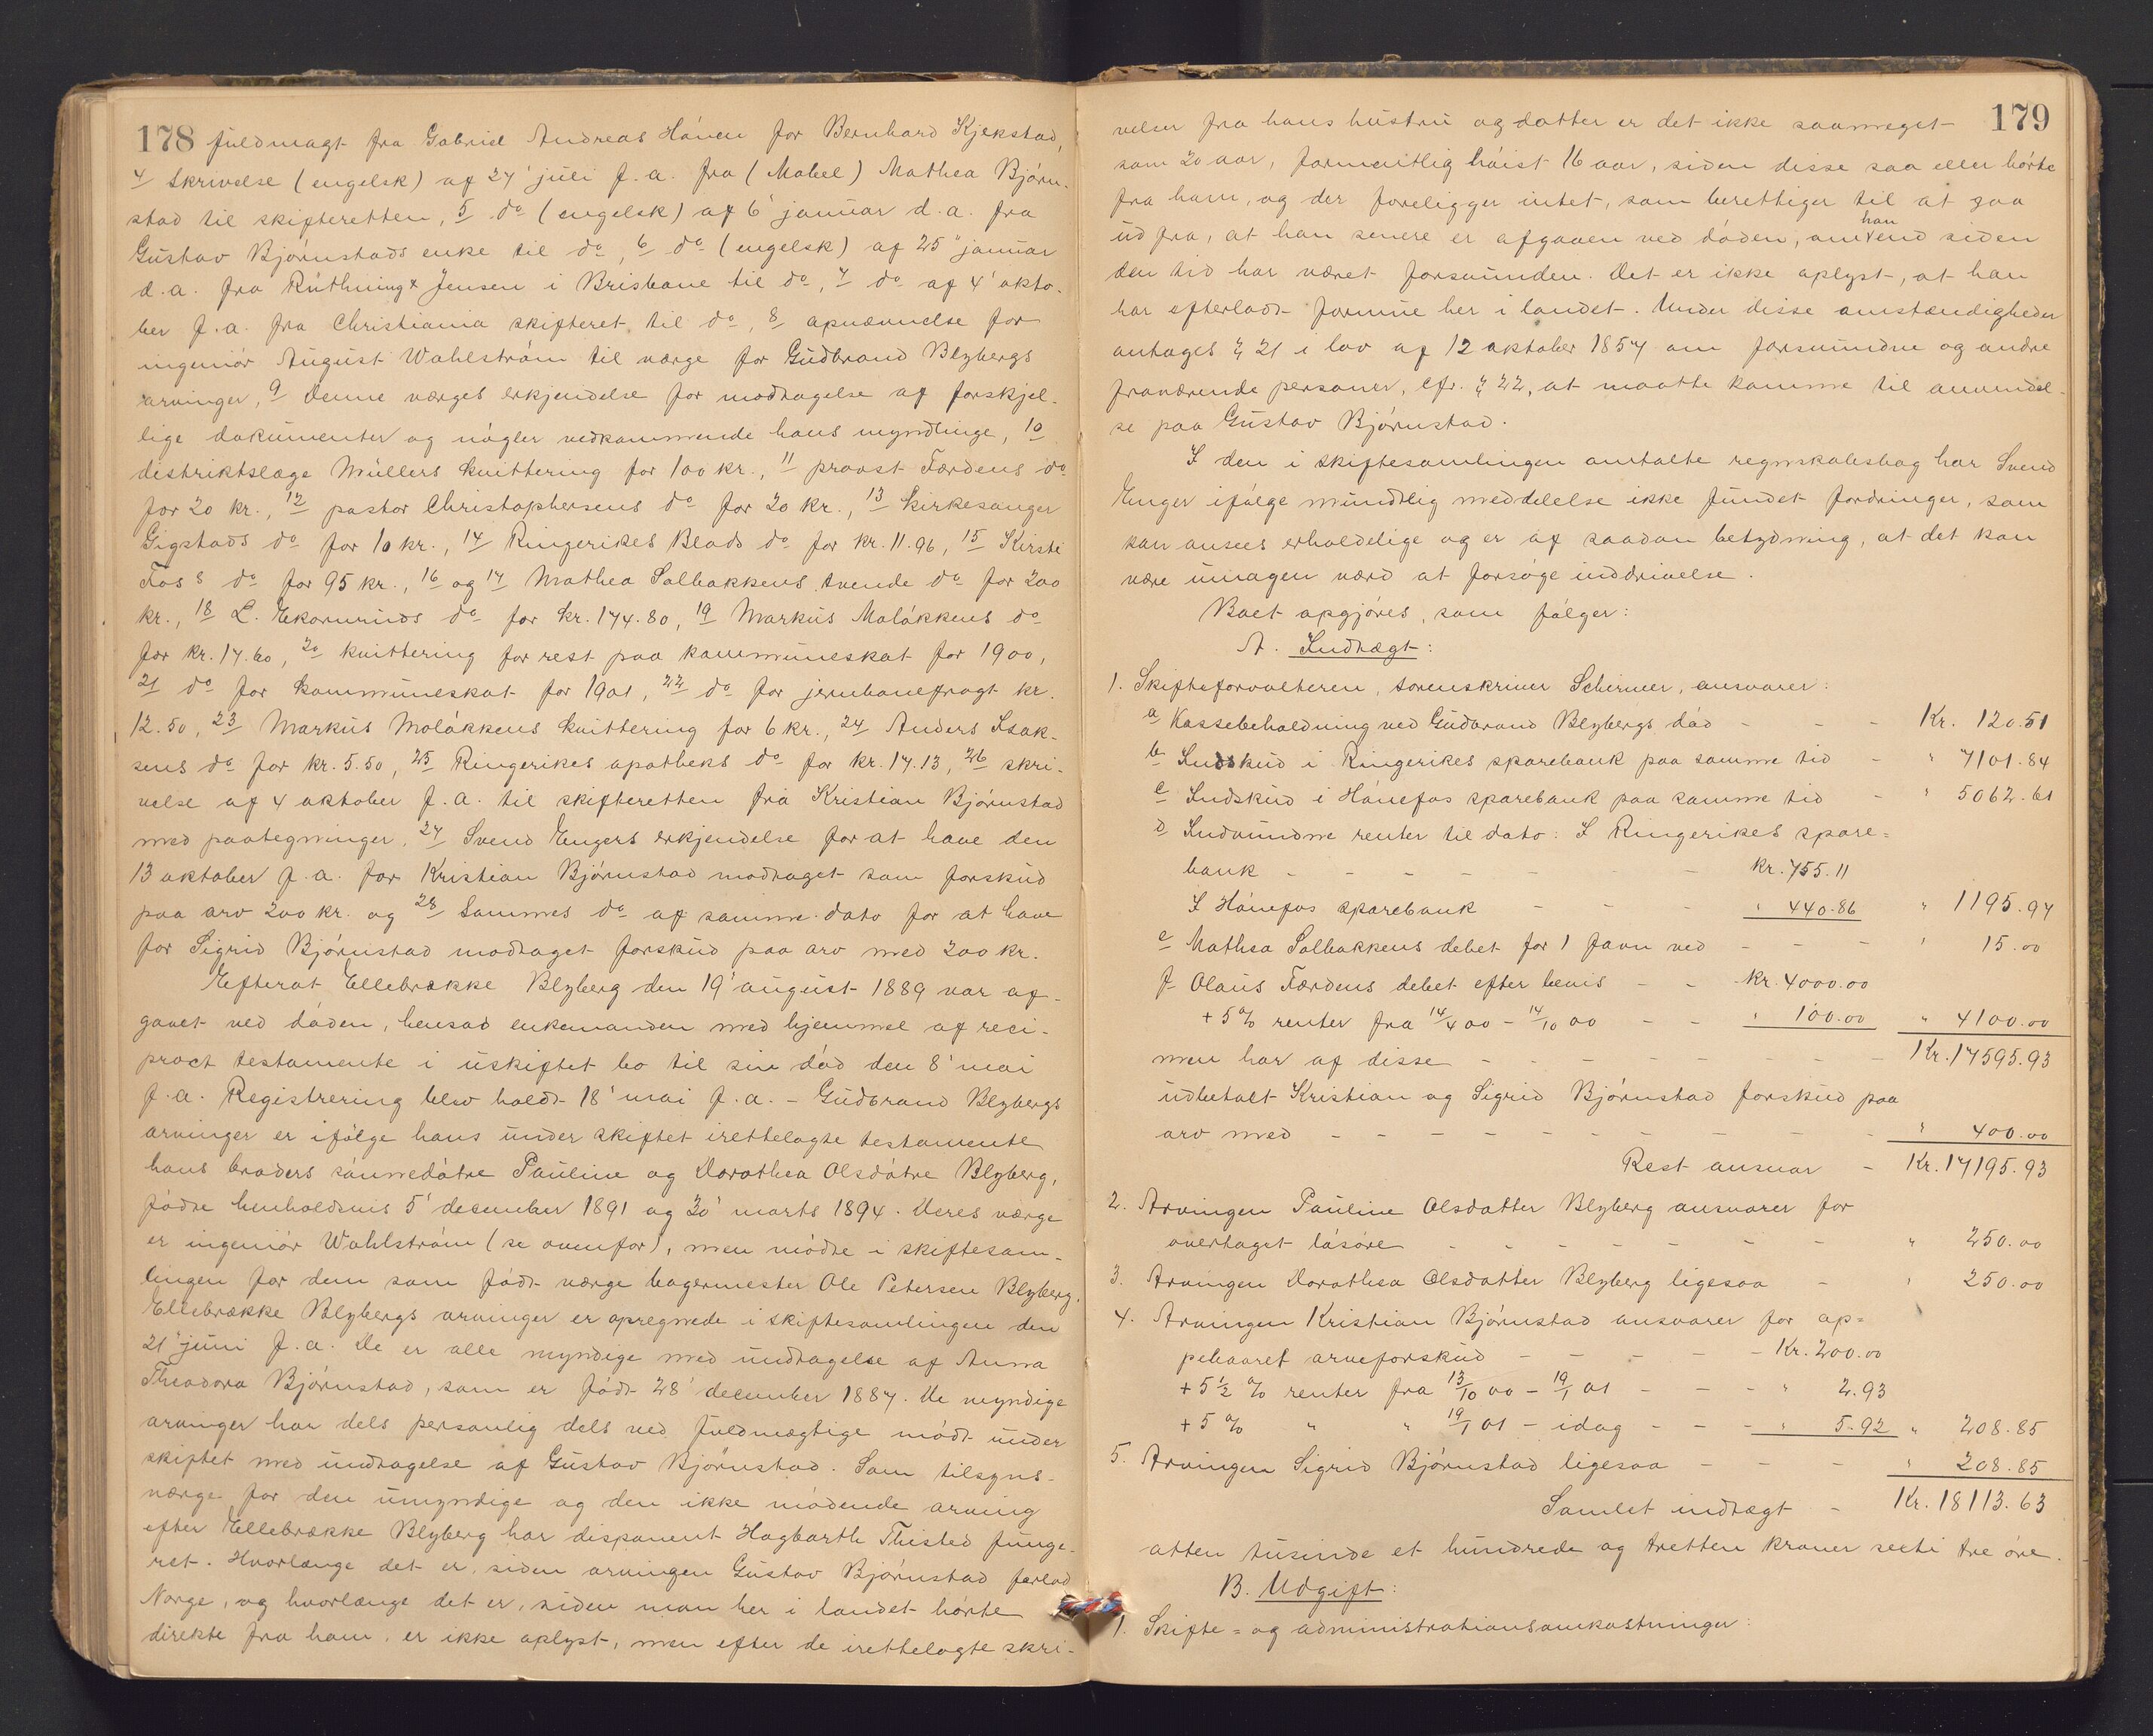 178 fuldmagt fra Gabriel Andreas Hónen for Bernhard Kjekstad,
4 skrivelse (engelsk) af 27' juli f. a. fra (Mabel) Mathea Bjórn-
stad til skifteretten, 5 do (engelsk) af 6' januar d. a. fra
Gustav Bjórnstads enke til do, 6 do (engelsk) af 25" januar
d. a. fra Ruthning & Jensen i Brisbane til do, 7 do af 4' okto-
ber f. a. fra Christiania skifteret til do, 8 opnævnelse for
ingeniór August Wahlstróm til værge for Gudbrand Blybergs
arvinger, 9 denne værges erkjendelse for modtagelse af forskjel-
lige dokumenter og nógler vedkommende hans myndlinge, 10
distriktslæge Müllers kvittering for 100 kr., 11 provst Færdens do
for 20 kr., 12 pastor Christophersens do for 20 kr., 13 kirkesanger
Gigstads do for 10 kr., 14 Ringerikes Blads do for kr. 11.96, 15 Kirsti
Fos's do for 95 kr., 16 og 17 Mathea Solbakkens tvende do for 200
kr., 18 L. Ekornruds do for kr. 174.80, 19 Markus Molókkens do
for kr. 17.60, 20 kvittering for rest paa kommuneskat for 1900,
21 do for kommuneskat for 1901, 22 do for jernbanefragt kr.
12.50, 23 Markus Molókkens kvittering for 6 kr., 24 Anders Isak-
sens do for kr. 5.50, 25 Ringerikes apotheks do for kr. 17.13, 26 skri-
velse af 4 oktober f. a. til skifteretten fra Kristian Bjórnstad
med paategninger, 27 Svend Engers erkjendelse for at have den
13 oktober f. a. for Kristian Bjórnstad modtaget som forskud
paa arv 200 kr. og 28 sammes do af samme dato for at have
for Sigrid Bjórnstad modtaget forskud paa arv med 200 kr.
Efterat Ellebrække Blyberg den 19' august 1889 var af-
gaaet ved dóden, hensad enkemanden med hjemmel af reci-
proct testamente i uskiftet bo til sin dód den 8' mai
f. a. Registrering blev holdt 18' mai f. a. - Gudbrand Blybergs
arvinger er ifólge hans under skiftet irettelagte testamente
hans broders sónnedótre Pauline og Dorothea Olsdótre Blyberg,
fódte henholdsvis 5' december 1891 og 30' marts 1894. Deres værge
er ingeniór Wahlstróm (se ovenfor), men módte i skiftesam-
lingen for dem som fódt værge bagermester Ole Petersen Blyberg.
Ellebrække Blybergs arvinger er opregnede i skiftesamlingen den
21" juni f. a. De er alle myndige med undtagelse af Anna
Theodora Bjórnstad, som er fódt 28' december 1887. De myndige
arvinger har dels personlig dels ved fuldmægtige módt under
skiftet med undtagelse af Gustav Bjórnstad. Som tilsyns-
værge for den umyndige og den ikke módende arving
efter Ellebrække Blyberg har disponent Hagbarth Thisted funge-
ret. Hvorlænge det er, siden arvingen Gustav Bjórnstad forlod
Norge, og hvorlænge det er, siden man her i landet hórte
direkte fra ham, er ikke oplyst, men efter de irettelagte skri-
179
velser fra hans hustru og datter er det ikke saameget
som 20 aar, formentlig hóist 16 aar, siden disse saa eller hórte
fra ham, og der foreligger intet, som berettiger til at gaa
ud fra, at han senere er afgaaen ved dóden, om han end siden
den tid har været forsvunden. Det er ikke oplyst, at han
har efterladt formue her i landet. Under disse omstændigheder
antages § 21 i lov af 12 oktober 1857 om forsvundne og andre
fraværende personer, cfr. § 22, at maatte komme til anvendel-
se paa Gustav Bjórnstad.
I den i skiftesamlingen omtalte regnskabsbog har Svend
Enger ifólge mundtlig meddelelse ikke fundet fordringer, som
kan ansees erholdelige og er af saadan betydning, at det kan
være umagen værd at forsóge inddrivelse.
Boet opgjóres, som fólger:
A. Indtægt:
1. Skifteforvalteren, sorenskriver Schirmer, ansvarer:
a Kassebeholdning ved Gudbrand Blybergs dód - - - Kr. 120.51
b Indskud i Ringerikes sparebank paa samme tid - " 7101.84
c Indskud i Hónefos sparebank paa samme tid - " 5062.61
d Indvundne renter til dato: I Ringerikes spare=
bank - - - - - - - kr. 755.11
I Hónefos sparebank - - - " 440.86 " 1195.97
e Mathea Solbakkens debet for 1 favn ved - - - " 15.00
f Olaus Færdens debet efter bevis - - kr. 4000.00
+ 5% renter fra 14/4 00 - 14/10 00 - - " 100.00 " 4100.00
men har af disse - - - - - - - - Kr. 17595.93
udbetalt Kristian og Sigrid Bjórnstad forskud paa
arv med - - - - - - - - - - " 400.00
Rest ansvar - Kr. 17195.93
2. Arvingen Pauline Olsdatter Blyberg ansvarer for
overtaget lósóre - - - - - - - " 250.00
3. Arvingen Dorothea Olsdatter Blyberg ligesaa - " 250.00
4. Arvingen Kristian Bjórnstad ansvarer for op=
pebaaret arveforskud - - - - - Kr. 200.00
+ 5 1/2 % renter fra 13/10 00 - 19/1 01 - - - " 2.93
+ 5 % " " 19/1 01 - idag - - - " 5.92 " 208.85
5. Arvingen Sigrid Bjórnstad ligesaa - - - " 208.85
Samlet indtægt - Kr. 18113.63
atten tusinde et hundrede og tretten kroner seeti tre óre.
B. Udgift:
1. Skifte= og administrationsomkostninger: